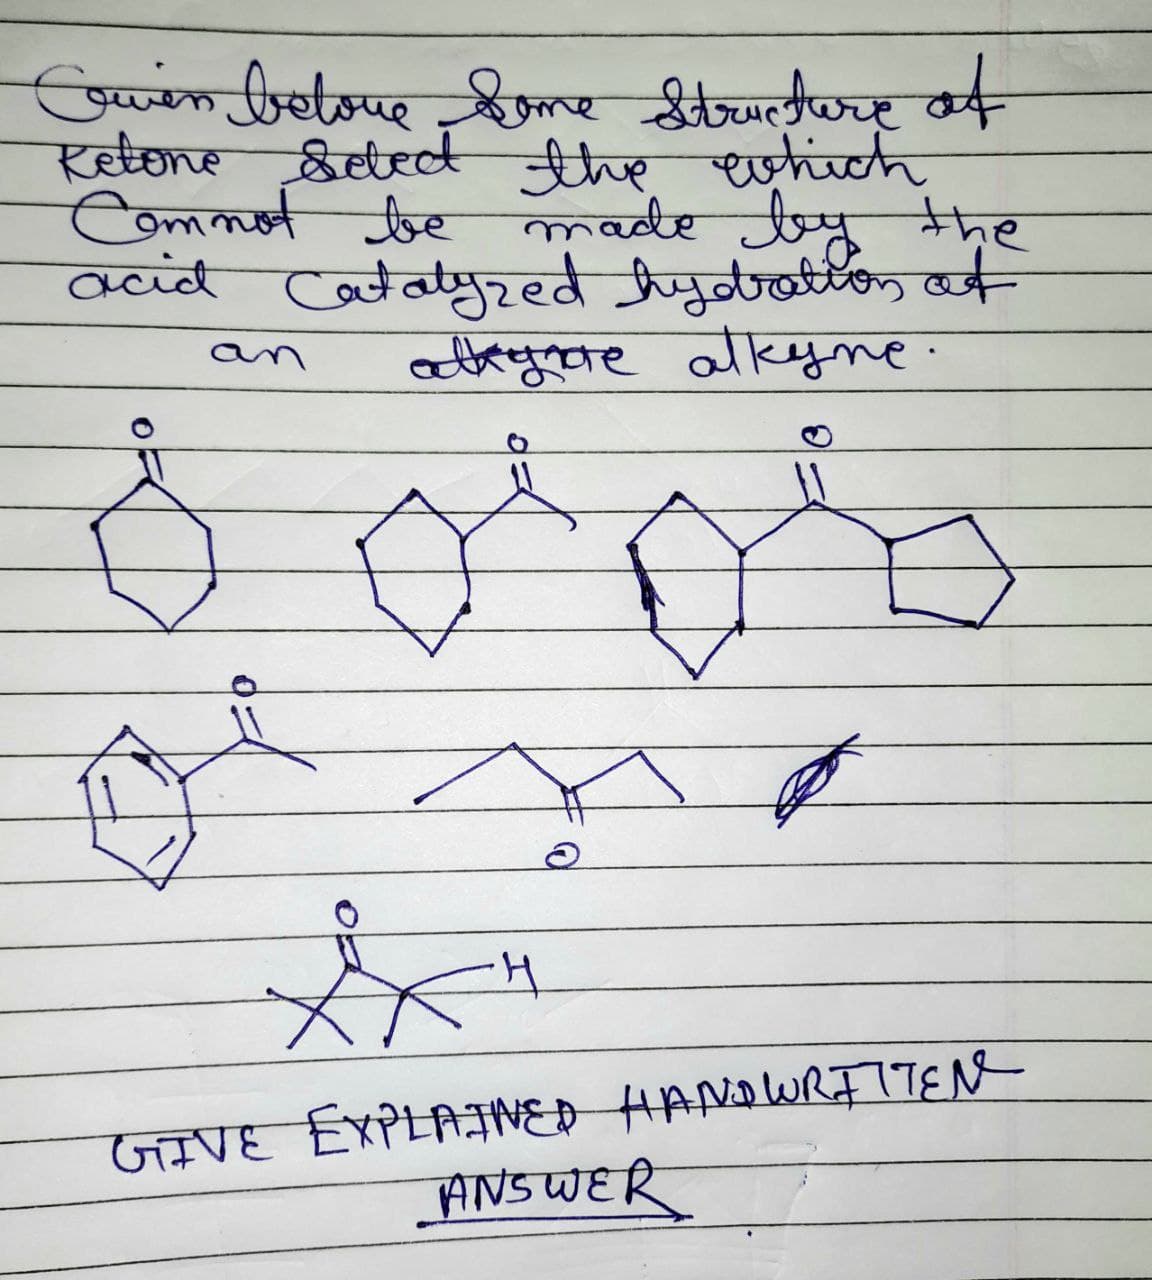 Given belove Some Structure of
Ketone Select the which
Comnot be made by the
acid Catalyzed hydration of
an alkyne.
O
O
O
O
O
O
H
GIVE EXPLAINED HANDWRITTEN
ANSWER